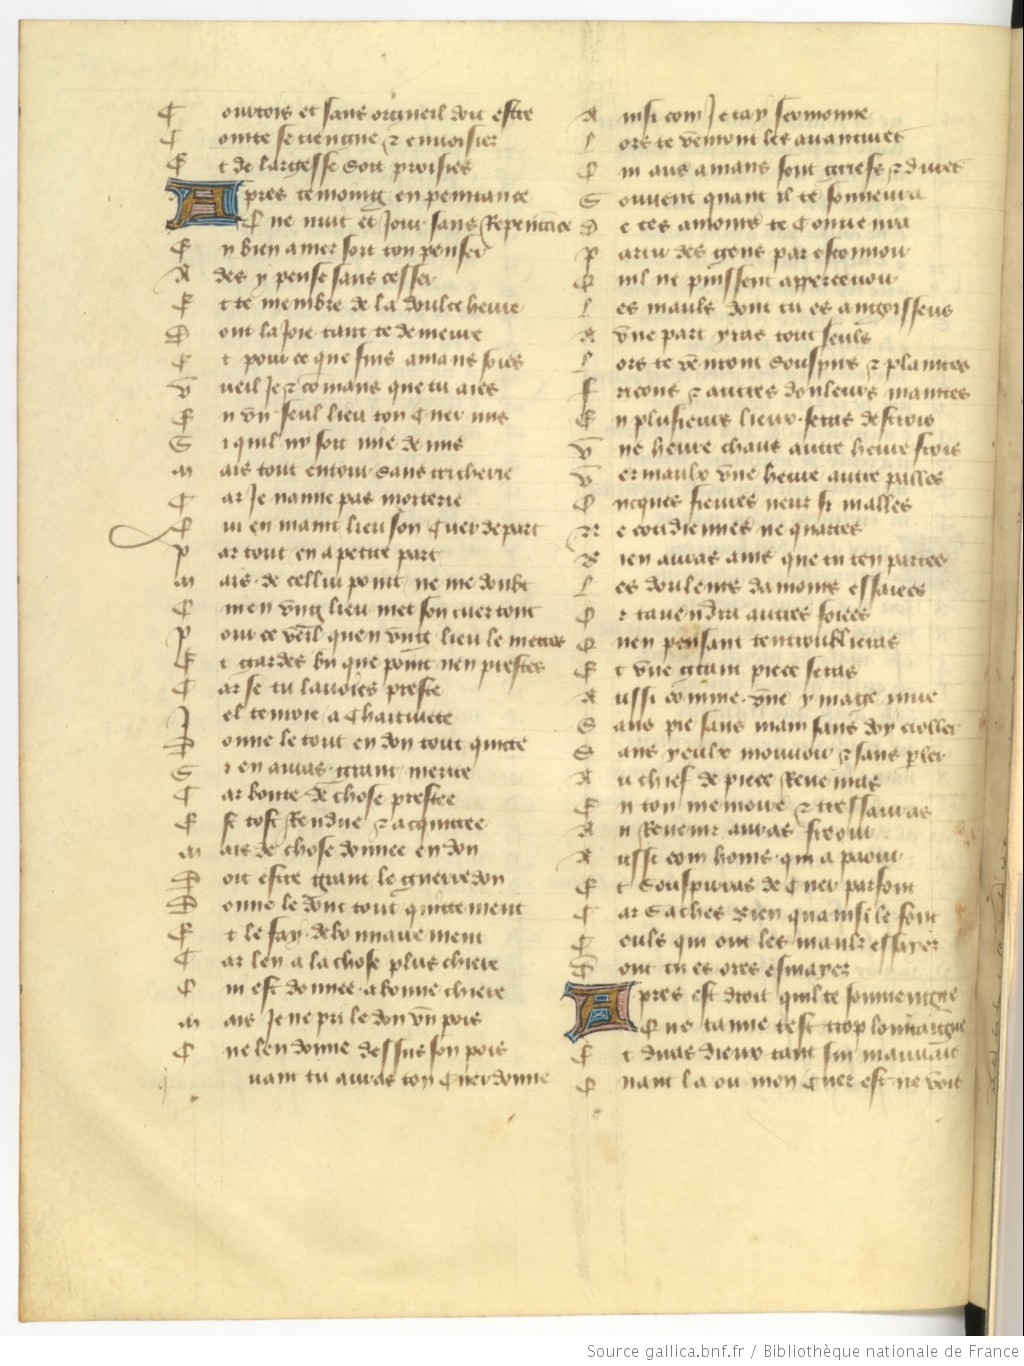 Courtois et sans orgueil doit estre
Cointe se tiengne et envoisier
Et de largesse soit proisies
Apres te moing en penitance
Que nuit et jour sans Repentance
En bien amer soit ton penser
Ades y pense sans cesser
Et te membre de la doulce heure
Dont la joie tant te demeure
Et pour ce que fins amans soies
Vueil je et comans que tu aies
En un seul lieu ton Cuer mis
Si quil ny soit mie demis
Mais tout entour sans tricherie
Car Je naime pas moiterie
Qui en maint lieu son Cuer depart
Par tout en a petite part
Mais de celluy point ne me doubt
Qui en ung lieu met son cuer tout
Pour ce veil quen ung lieu le mettes
Et gardes bn que point nen prestes
Car se tu lavoies preste
Jel tenroie a Chaitivete
Donne le tout en don tout quitte
Si en auras grant merite
Car bonte de chose prestee
Est tost Rendue et acquittee
Mais de chose donnee en don
Doit estre grant le guerredon
Donne le donc tout quittement
Et le fay debonnairement
Car len a la chose plus chiere
Qui est donnee a bonne chiere
Mais Je ne pri le don un pois
Que len donne dessus son pois
Quant tu auras ton Cuer donne
Ainsi com Je tay sermonne
Lors te venront les avantures
Qui aus amans sont griefs et dures
Souvent quant il te sonvenra
De tes amours te Convenra
Partir des gens par estonvoir
Quil ne puissent appercevoir
Les maulx dont tu es angoisseus
A une part yras tout seuls
Lors te venront souspirs et plaintes
Fricons et autres douleurs maintes
En plusieurs lieux seras destrois
Une heure chaus autre heure frois
Vermaulx une heure autre palles
Oncques fievres neur si malles
Ne cotidiennes ne quartes
Bien auras ains que tu ten partes
Les doulents damours essaiees
Or tavendra autres foiees
Quen pensant tentroublieras
Et une grant piece seras
Aussi comme une ymage mue
Sans pie sans main sans doy croller
Sans yeulx mouvoir et sans pler
Au chief de piece Revenras
En ton memoire et tressauras
An Revenir auras freour
Aussi com homs qui a paour
Et souspiras de Cuer parfont
Car saches bien quainsi le font
Ceuls qui ont les maulx essayez
Dont tu es ores esmayez
Apres est droit quil te sonviengne
Que tamie test trop lointaingne
Et diras dieux tant sui mauvais
Quant la ou mon Cuer est ne vois
Source gallica.bnf.fr / Bibliothèque nationale de France